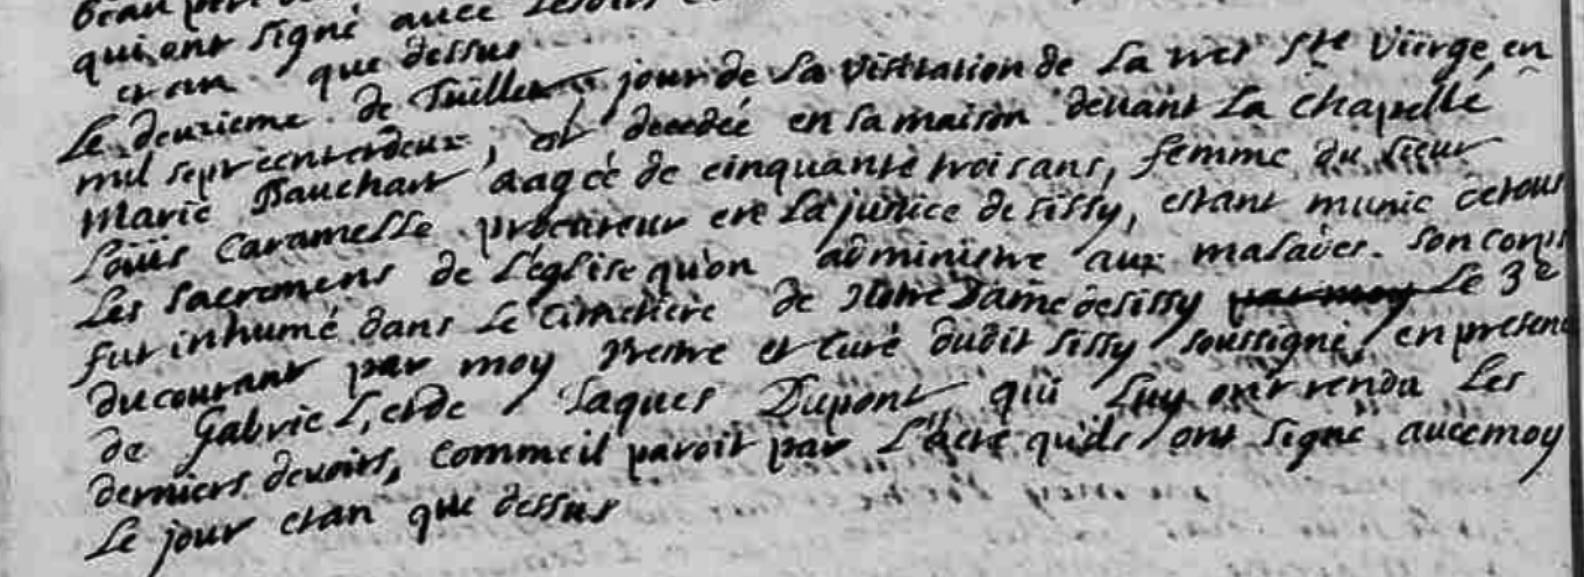 qui ont signé avec
et an que dessus
Le deuxieme de Juillet jour de La visitation de La tres Ste Vierge, en
mil sept cent et deux, est decedée en sa maison devant La Chapelle
Marie Dauchart aagée de cinquante trois ans, femme du sieur
Loüis Caramelle procureur en La justice de sissy, estant munie de tous
Les sacremens de L'église qu'on administre aux malades. son corps
fut inhumé dans Le Cimetiere de Notre Dame de sissy par moy Le 3e
du courant par moy Prestre et Curé dudit sissy soussigné, en presence
de Gabriel, et de Jaques Dupont qui Luy ont rendu Les
derniers devoirs, comme il paroit par L'acte qu'ils ont signé avec moy
Le jour et an que dessus